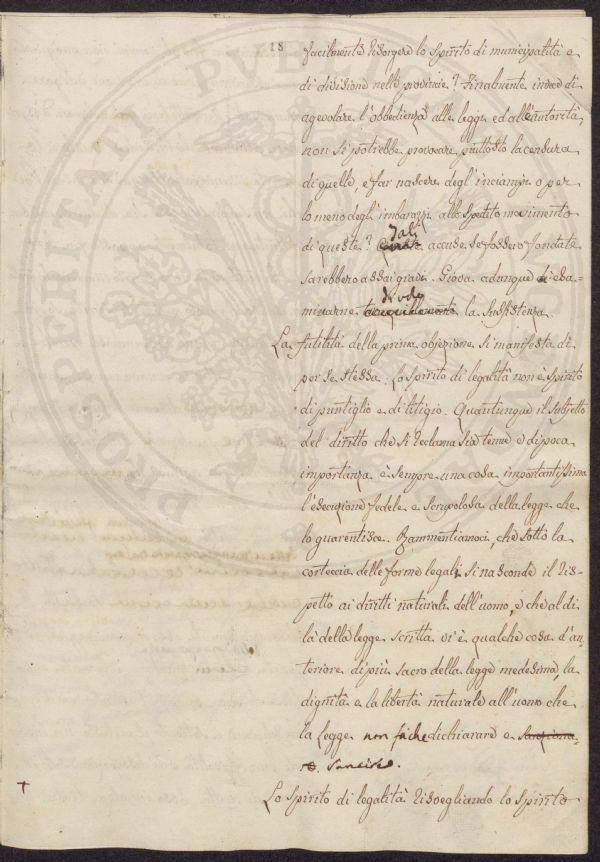 18
facilmente risorgere lo spirito di municipalità e
di divisione nelle provincie? Finalmente invece di
agevolare l'obbedienza alle leggi ed all'autorità,
non si potrebbe provocare piuttosto la censura
di quelle, e far nascere degl'inciampi o per
lo meno degl'imbarazzi allo spedito movimento
di queste? Tali accuse se fossero fondate
sarebbero assai gravi. Giova adunque di esa-
minarne tranquillamente la sussistenza.
La futilità della prima objezione si manifesta di
per se stessa. Lo spirito di legalità non è spirito
di puntiglio e di litigio. Quantunque il subjetto
del diritto che si reclama sia tenue e di poca
importanza è sempre una cosa importantissima
l'esecuzione fedele e scrupolosa della legge che
lo guarentisce. Rammentiamoci, che sotto la
corteccia delle forme legali si nasconde il ris-
petto ai diritti naturali dell'uomo, e che al di
là della legge scritta vi è qualche cosa d'an-
teriore di più sacro della legge medesima, la
dignità e la libertà naturale all'uomo che
la Legge non fa che dichiarare e sanziona-
re. sancire.
Lo spirito di legalità risvegliando lo spirito
PROSPERITATI PVBLICAE